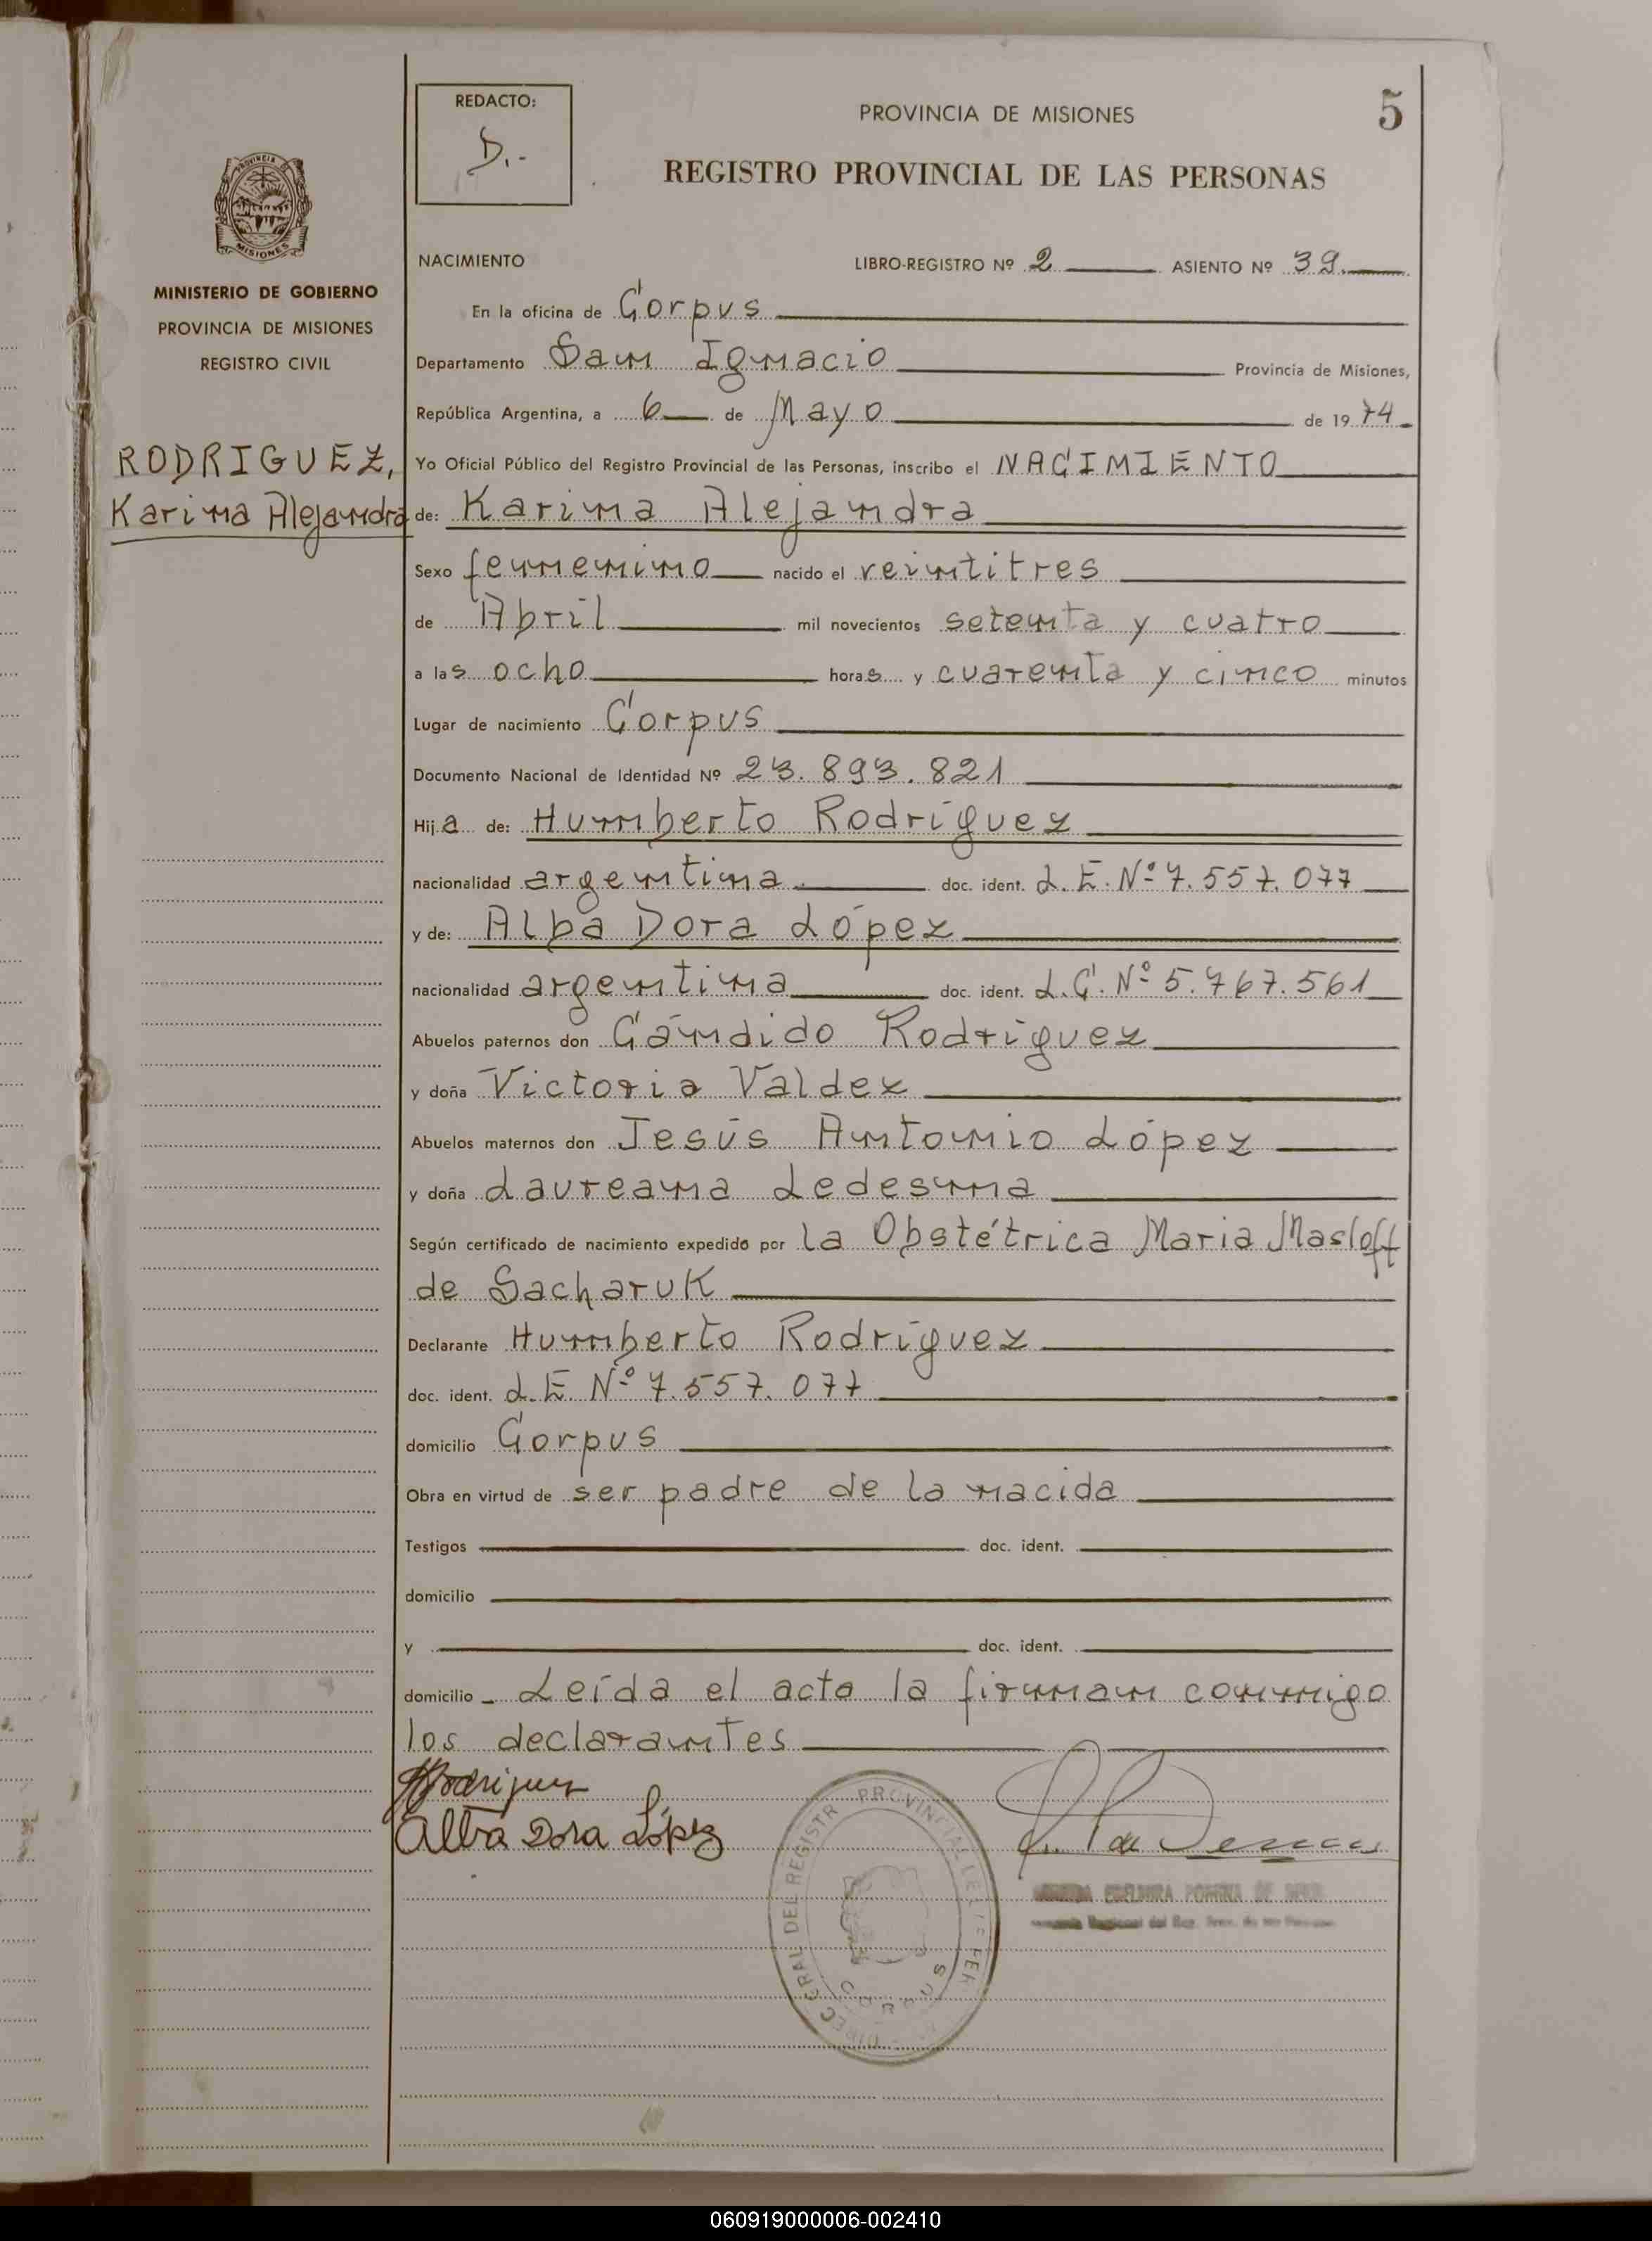 REDACTO:
D.-
PROVINCIA DE MISIONES
5
REGISTRO PROVINCIAL DE LAS PERSONAS
PROVINCIA
MISIONES
MINISTERIO DE GOBIERNO
PROVINCIA DE MISIONES
REGISTRO CIVIL
RODRIGUEZ,
Karina Alejandra
NACIMIENTO LIBRO-REGISTRO Nº 2 ASIENTO Nº 39.
En la oficina de Corpus
Departamento San Ignacio Provincia de Misiones,
República Argentina, a 6 de Mayo de 1974
Yo Oficial Público del Registro Provincial de las Personas, inscribo el NACIMIENTO
de: Karina Alejandra
Sexo femenino nacido el veintitres
de Abril mil novecientos setenta y cuatro
a las ocho horas y cuarenta y cinco minutos
Lugar de nacimiento Corpus
Documento Nacional de Identidad Nº 23.893.821
Hija de: Humberto Rodríguez
nacionalidad argentina. doc. ident. L.E. Nº 7.557.077
y de: Alba Dora López
nacionalidad argentina doc. ident. L.C. Nº 5.767.561
Abuelos paternos don Cándido Rodríguez
y doña Victoria Valdez
Abuelos maternos don Jesús Antonio López
y doña Laureana Ledesma
Según certificado de nacimiento expedido por la Obstétrica Maria Masloff
de Sacharuk
Declarante Humberto Rodríguez
doc. ident. L.E. Nº 7.557.077
domicilio Corpus
Obra en virtud de ser padre de la nacida
Testigos doc. ident.
domicilio
y doc. ident.
domicilio - Leída el acta la firman conmigo
los declarantes
HRodriguez
Alba Dora López
DIREC. GRAL DEL REGISTR PROVINCIAL DE
CORPUS
060919000006-002410